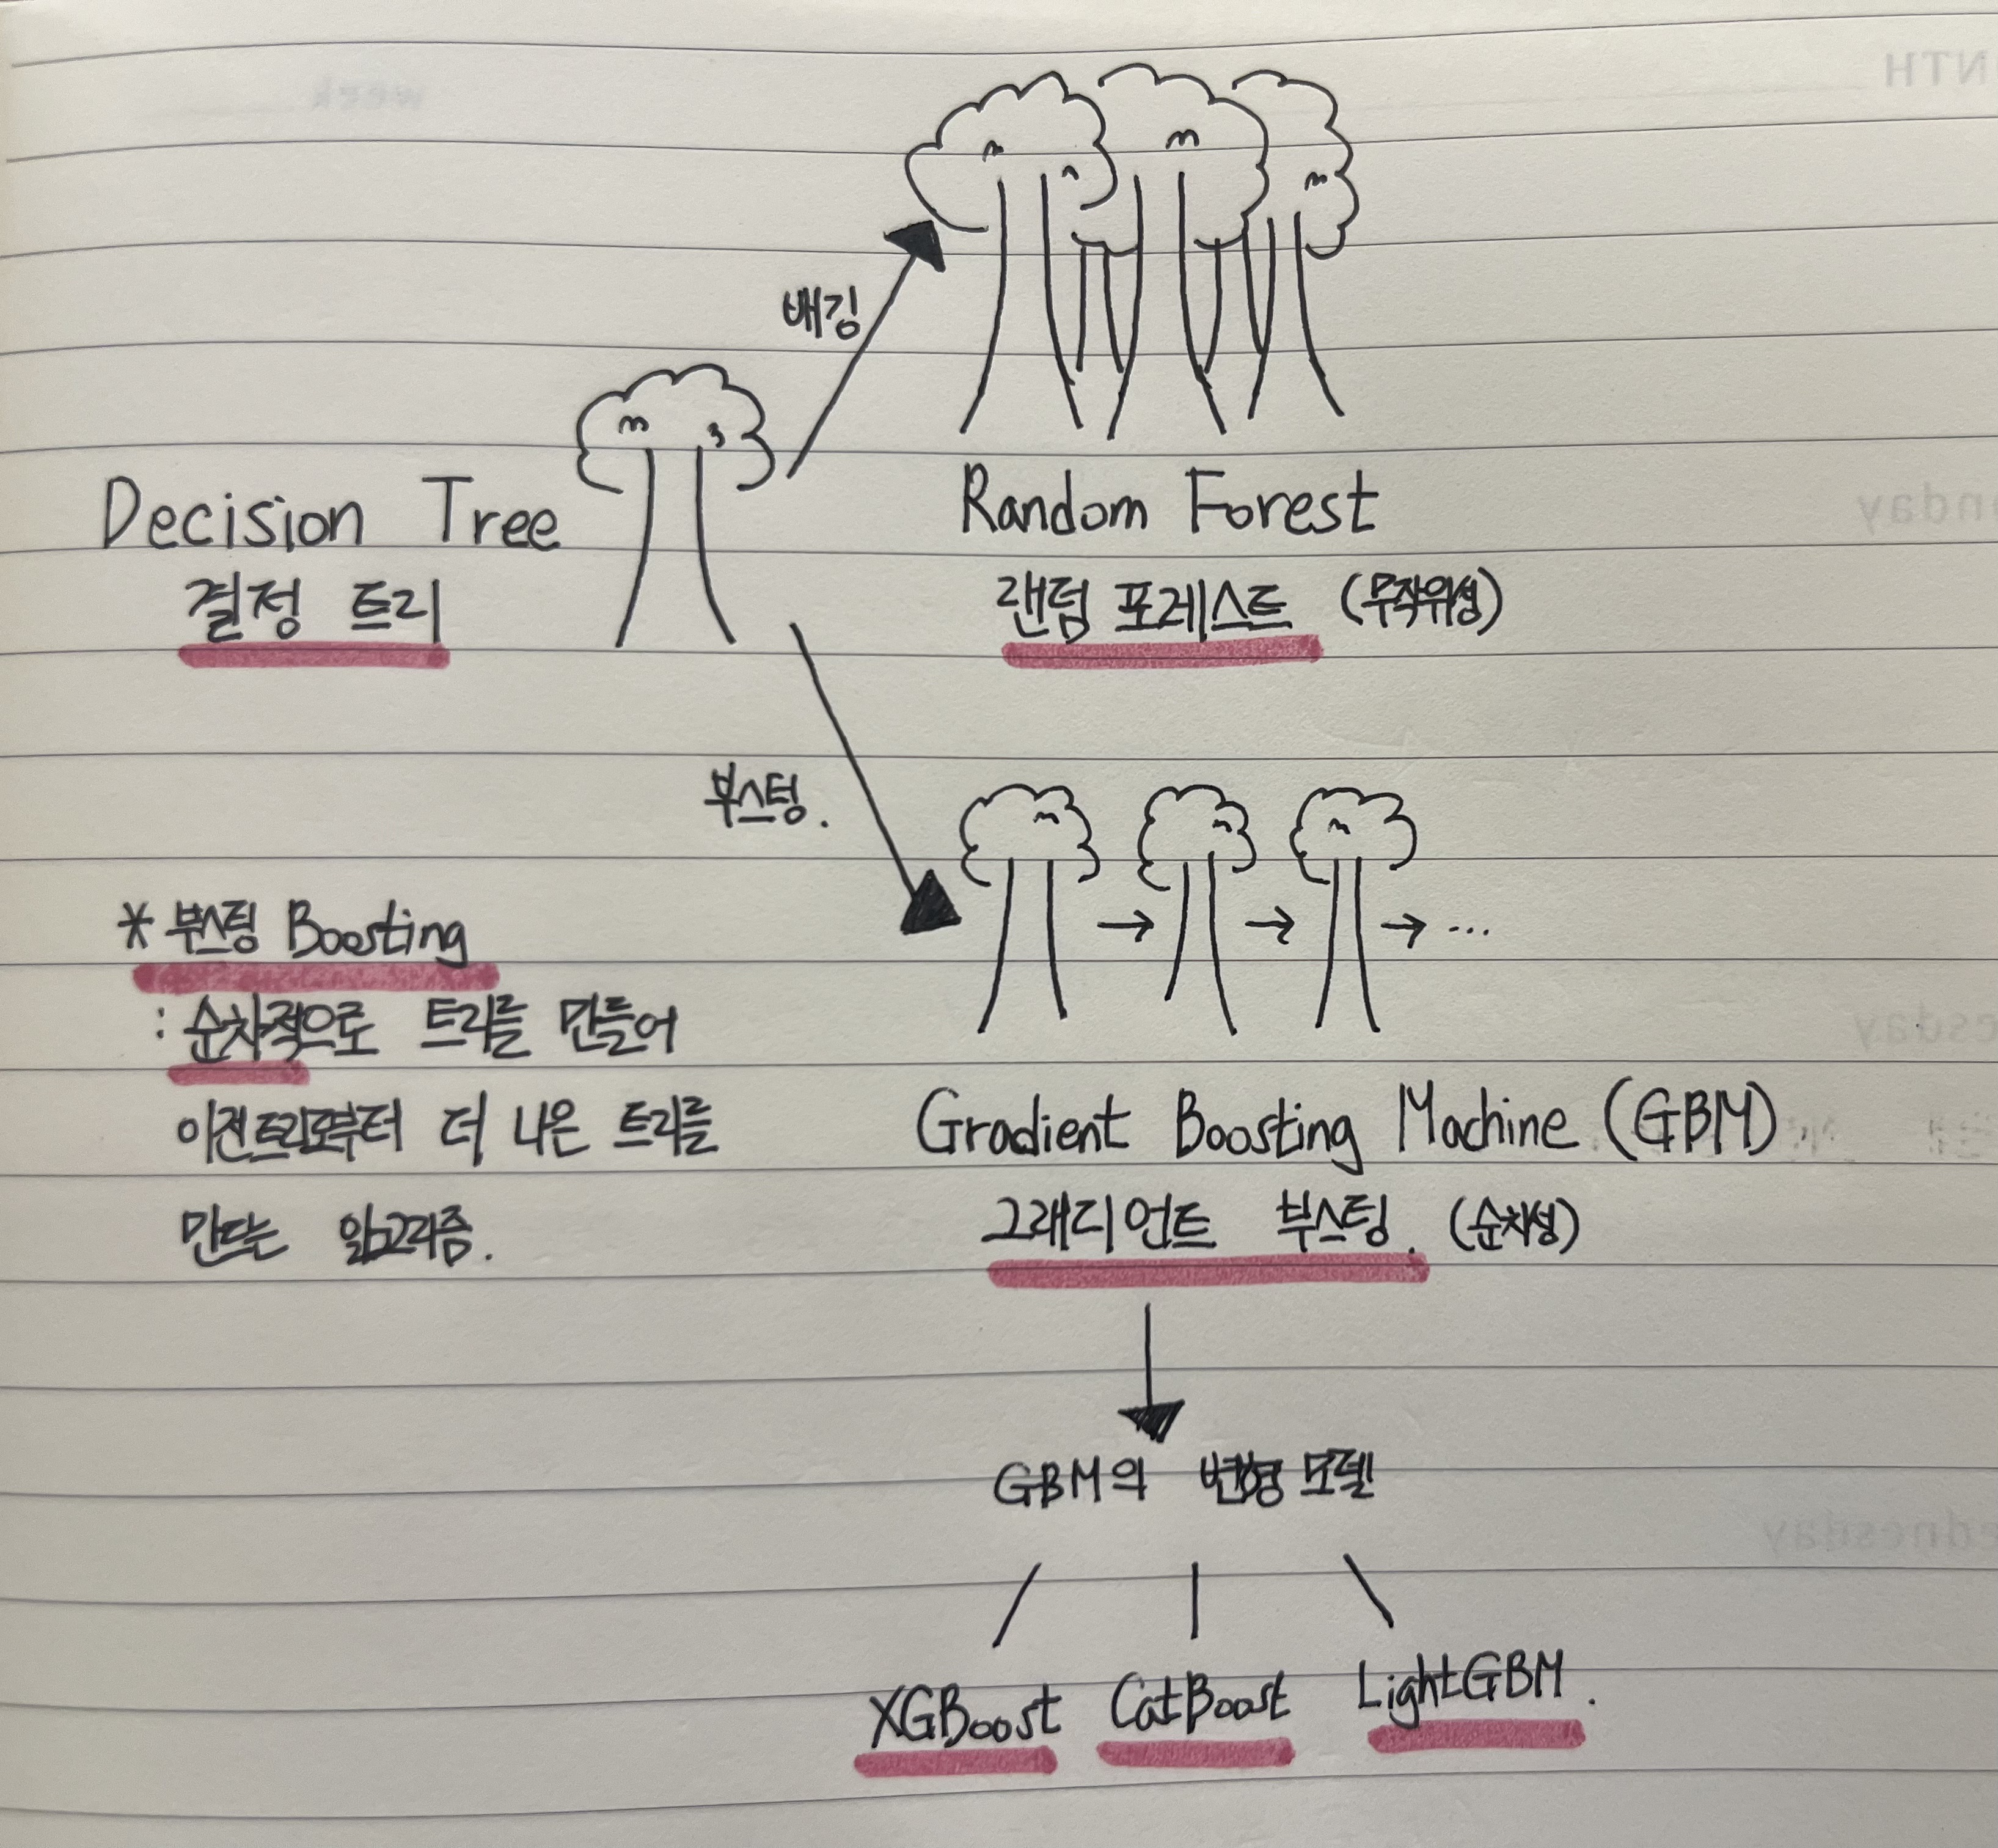 week
NTH
배깅
Decision Tree
결정 트리
Random Forest
랜덤 포레스트 (무작위성)
부스팅.
* 부스팅 Boosting
: 순차적으로 트리를 만들어
이전트리로부터 더 나은 트리를
만드는 알고리즘.
→ → → ...
Gradient Boosting Machine (GBM)
그래디언트 부스팅. (순차성)
GBM의 변형 모델
XGBoost CatBoost LightGBM.